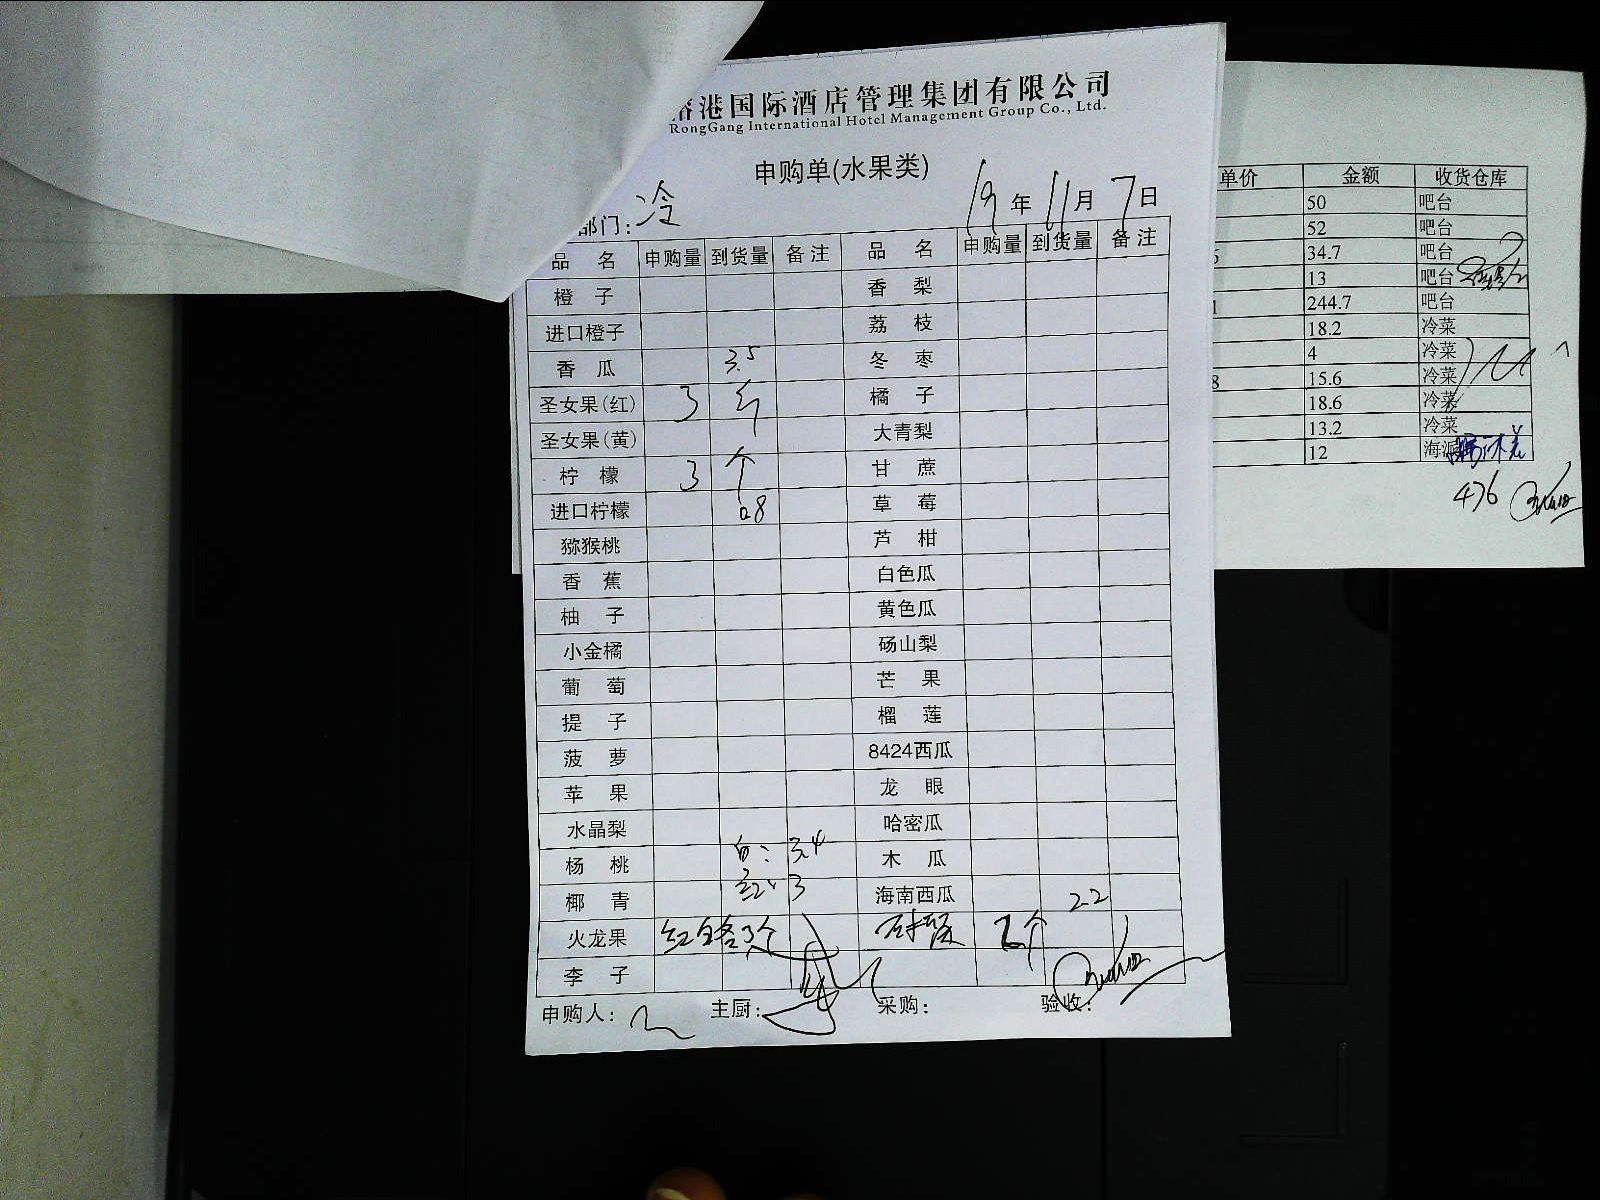 港国际酒店管理集团有限公司
RongGang International Hotel Management Group Co., Ltd.
申购单(水果类)
部门: 冷 19 年 11 月 7 日
品 名 申购量 到货量 备注 品 名 申购量 到货量 备注
橙 子 香 梨
进口橙子 荔 枝
香 瓜 3.5 冬 枣
圣女果(红) 3 斤 橘 子
圣女果(黄) 大青梨
柠 檬 3 个 甘 蔗
进口柠檬 0.8 草 莓
猕猴桃 芦 柑
香 蕉 白色瓜
柚 子 黄色瓜
小金橘 砀山梨
葡 萄 芒 果
提 子 榴 莲
菠 萝 8424西瓜
苹 果 龙 眼
水晶梨 哈密瓜
杨 桃 白: 3.4 木 瓜
椰 青 红: 3 海南西瓜 2.2
火龙果 红白各3个 个
李 子
申购人: 主厨: 采购: 验收:
单价 金额 收货仓库
50 吧台
52 吧台
34.7 吧台
13 吧台
1 244.7 吧台
18.2 冷菜
4 冷菜
8 15.6 冷菜
18.6 冷菜
13.2 冷菜
12 海派
476